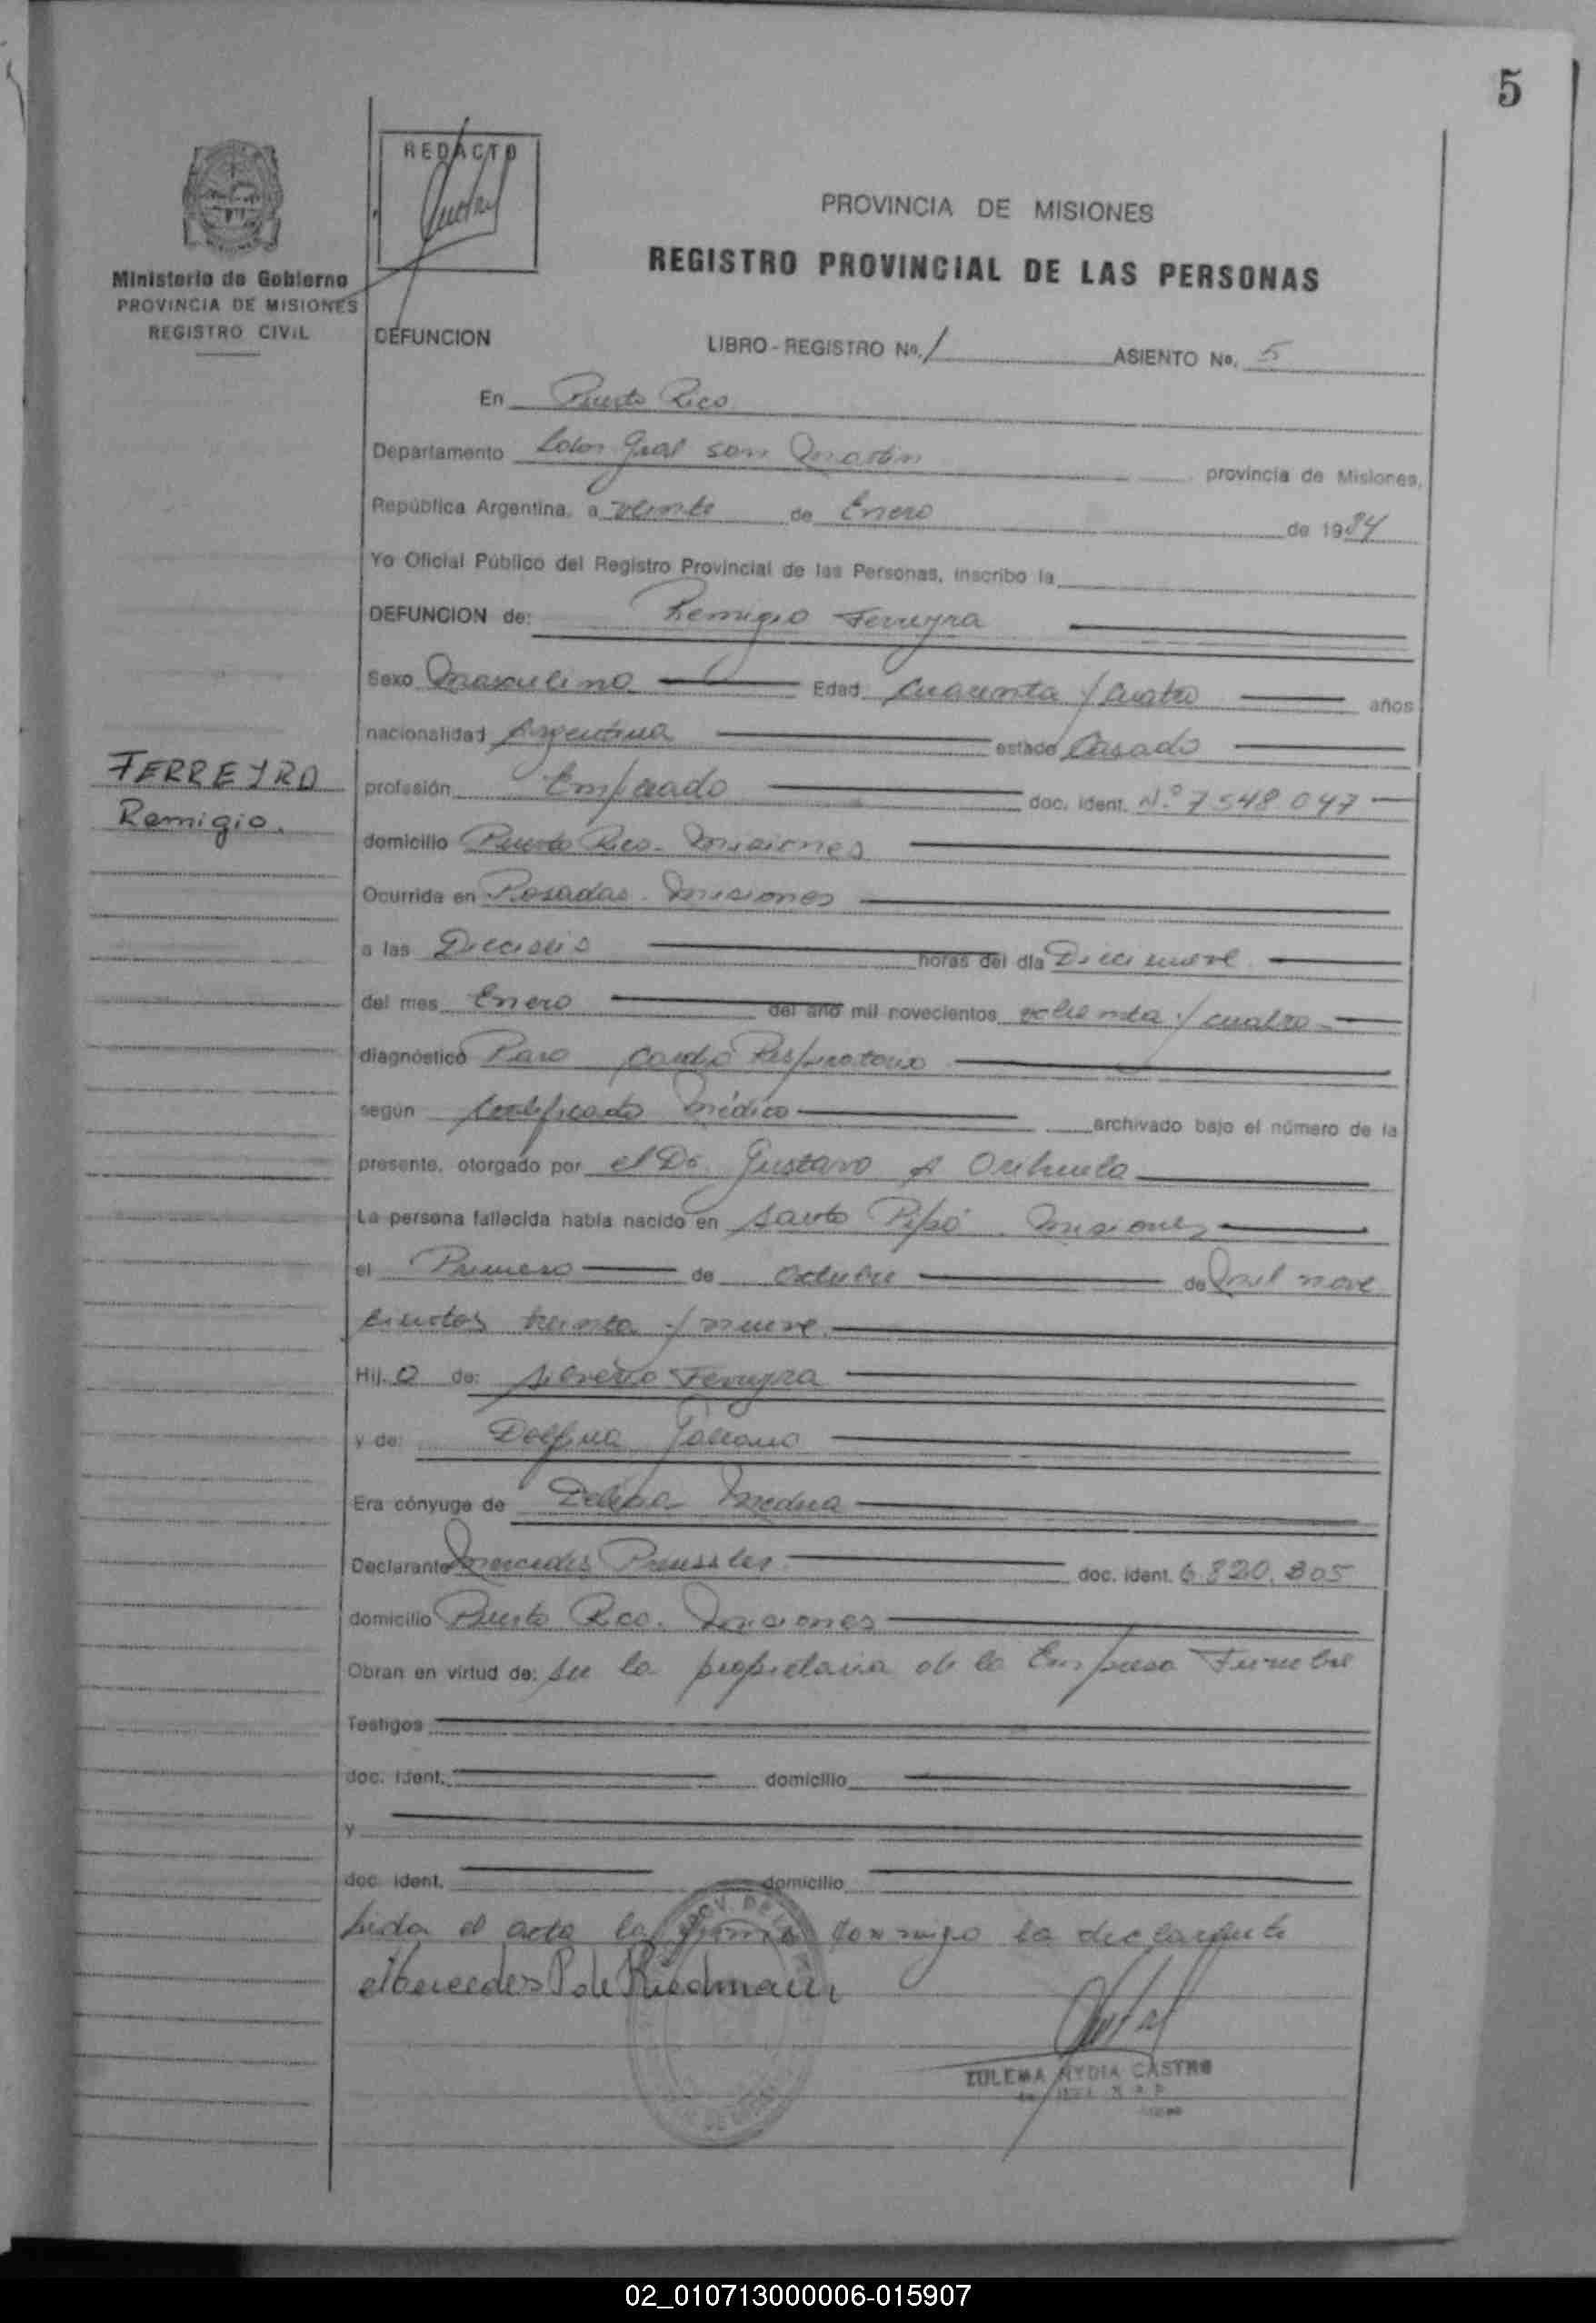 5
REDACTO
Ministerio de Gobierno
PROVINCIA DE MISIONES
REGISTRO CIVIL
PROVINCIA DE MISIONES
REGISTRO PROVINCIAL DE LAS PERSONAS
DEFUNCION LIBRO - REGISTRO No. 1 ASIENTO No. 5
En Puerto Rico
Departamento Lib Gral San Martin provincia de Misiones,
República Argentina, a veinte de Enero de 1984
Yo Oficial Público del Registro Provincial de las Personas, inscribo la
DEFUNCION de: Remigio Ferreyra
Sexo Masculino Edad Cuarenta y Cuatro años
nacionalidad Argentina estado Casado
FERREYRA
Remigio.
profesión Empleado doc. ident. N.º 7548.047
domicilio Puerto Rico - Misiones
Ocurrida en Posadas - Misiones
a las Dieciseis horas del día Diecinueve
del mes Enero del año mil novecientos ochenta y cuatro
diagnóstico Paro Cardio Respiratorio
según Certificado Médico archivado bajo el número de la
presente, otorgado por el Dr. Gustavo A Orihuela
La persona fallecida había nacido en Santo Pipó - Misiones
el Primero de Octubre de Mil nove
cientos treinta y nueve.
Hij o de: Silverio Ferreyra
y de: Delfina
Era cónyuge de Medina
Declarante Mercedes Preussler doc. ident. 6.820.805
domicilio Puerto Rico. Misiones
Obran en virtud de: ser la propietaria de la Empresa Funebre
Testigos
doc. ident. domicilio
y
doc. ident. domicilio
Leida el acta la firma conmigo la declarante
Mercedes P de Riedmann
ZULEMA NYDIA CASTRO
02_010713000006-015907